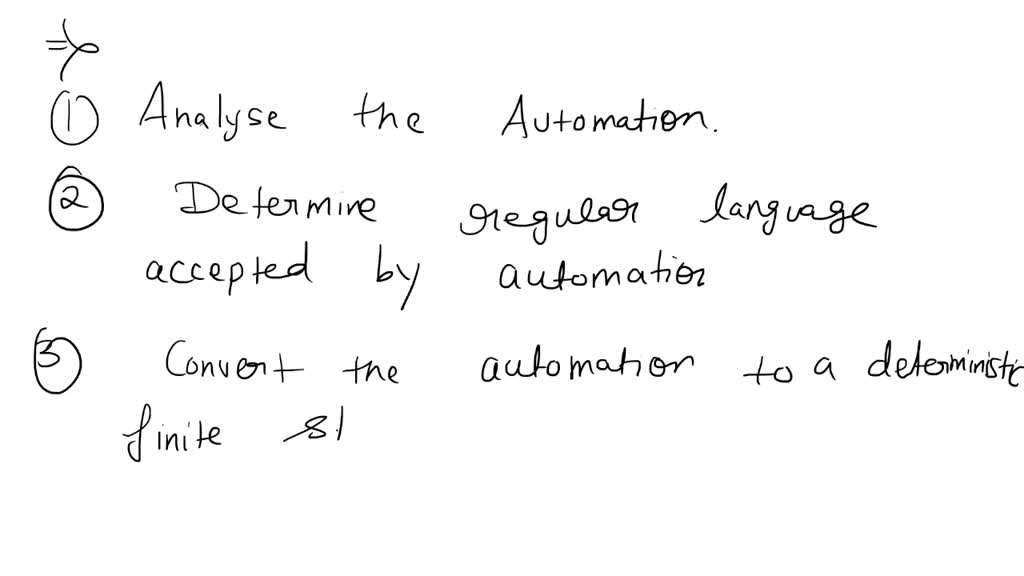 ⇒
① Analyse the Automation.
② Determine regular language
accepted by automation
③ Convert the automation to a deterministic
finite st